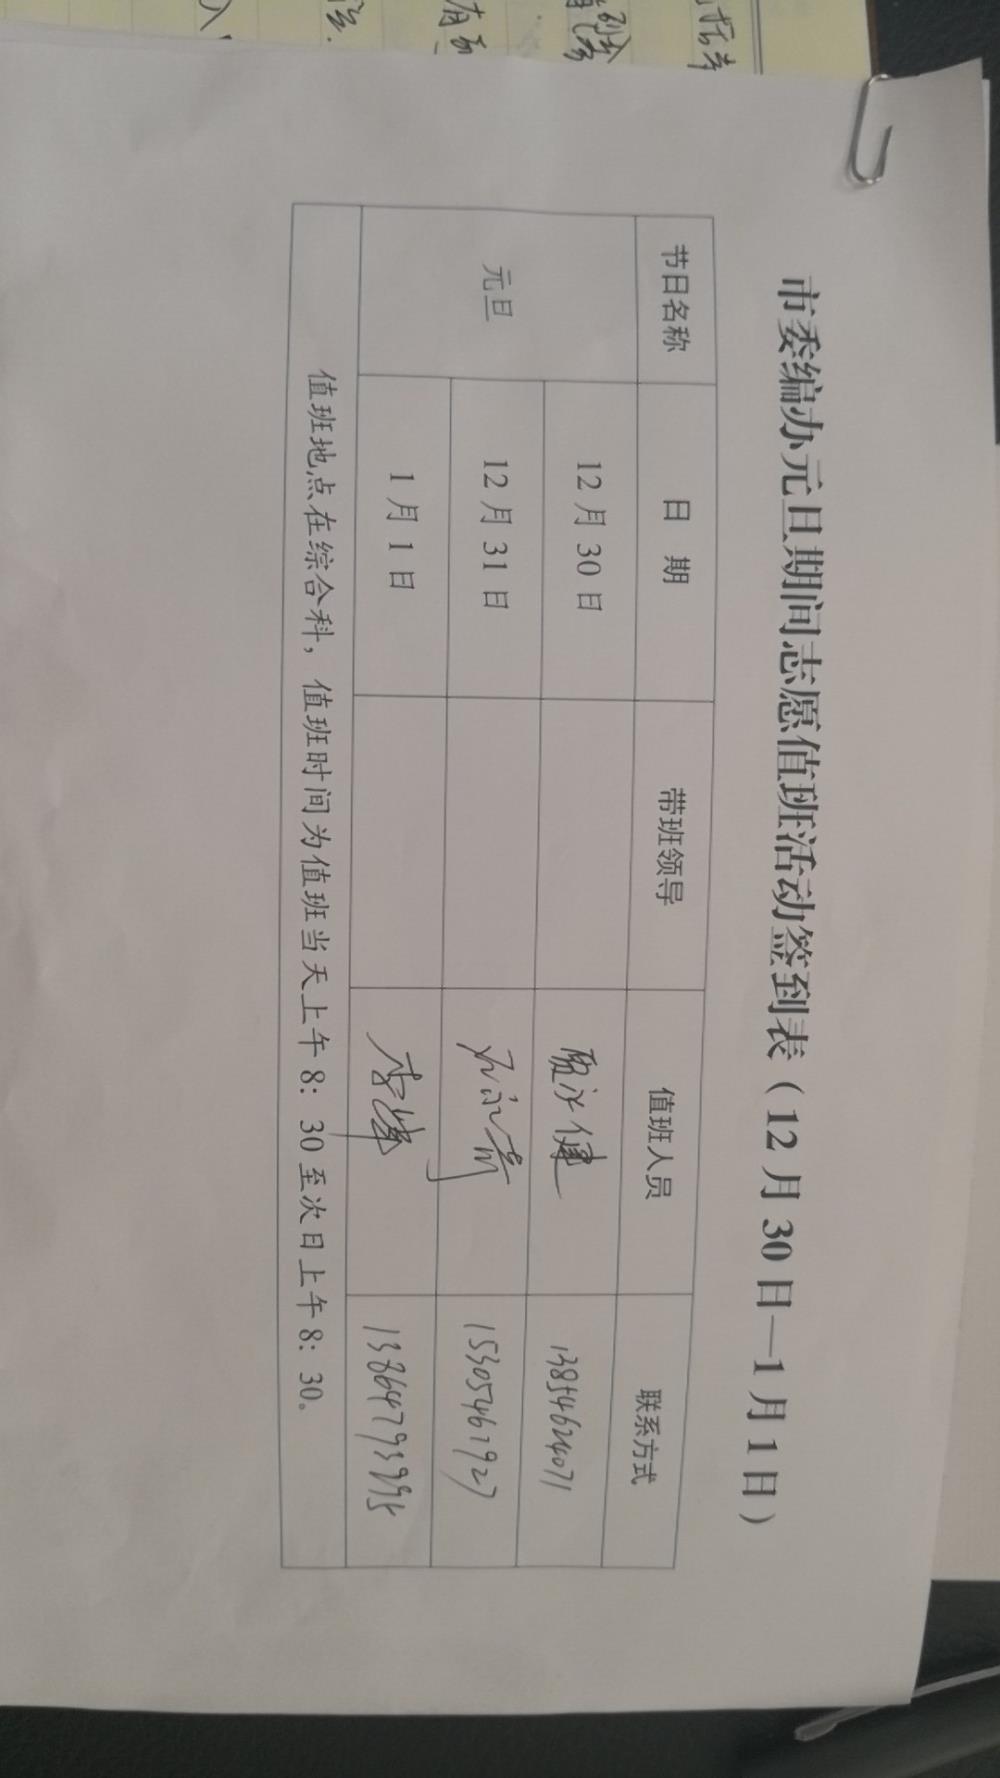 市委编办元旦期间志愿值班活动签到表（12月30日—1月1日）
节日名称 日 期 带班领导 值班人员 联系方式
元旦
12月30日 健 13854624071
12月31日 15305461927
1月1日 李 13864793995
值班地点在综合科，值班时间为值班当天上午8：30至次日上午8：30。